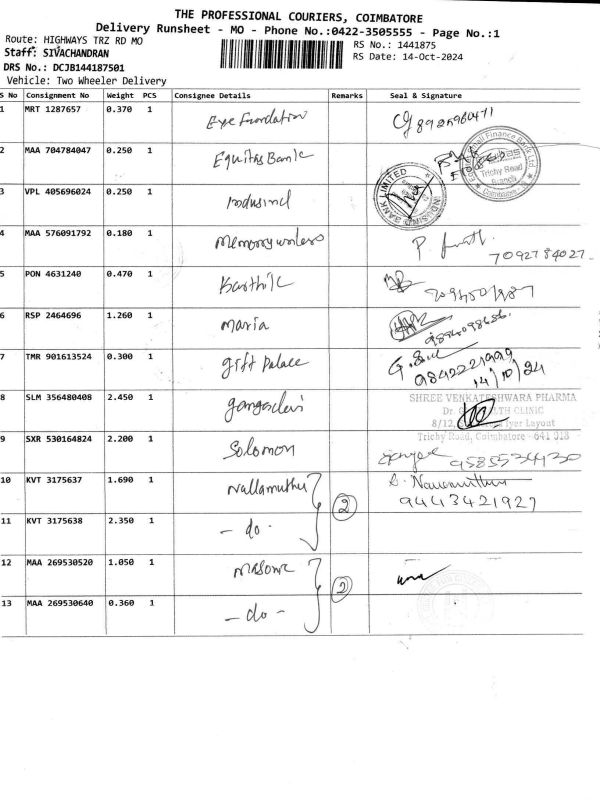 THE PROFESSIONAL COURIERS, COIMBATORE
Delivery Runsheet - MO - Phone No.:0422-3505555 - Page No.:1
Route: HIGHWAYS TRZ RD MO
RS No.: 1441875
Staff: SIVACHANDRAN
RS Date: 14-Oct-2024
DRS No.: DCJB144187501
Vehicle: Two Wheeler Delivery
S No Consignment No Weight PCS Consignee Details Remarks Seal & Signature
1 MRT 1287657 0.370 1 Eye Foundation
2 MAA 704784047 0.250 1 Equitas Bank
Finance Bank Ltd
Trichy Road
Branch
3 VPL 405696024 0.250 1 Indusind
INDUSIND BANK LIMITED
4 MAA 576091792 0.180 1
7092784027
5 PON 4631240 0.470 1 Karthik
6 RSP 2464696 1.260 1 Maria
7 TMR 901613524 0.300 1 Gift Palace
9842221999
14/10/24
8 SLM 356480408 2.450 1 gangadevi
SHREE VENKATESHWARA PHARMA
Dr LTH CLINIC
8/12, Iyer Layout
Trichy Road, Coimbatore - 641 018
9 SXR 530164824 2.200 1 Solomon
9585534730
10 KVT 3175637 1.690 1 Nallamuthu 2
9443421927
11 KVT 3175638 2.350 1 - do -
12 MAA 269530520 1.050 1 2
13 MAA 269530640 0.360 1 - do -